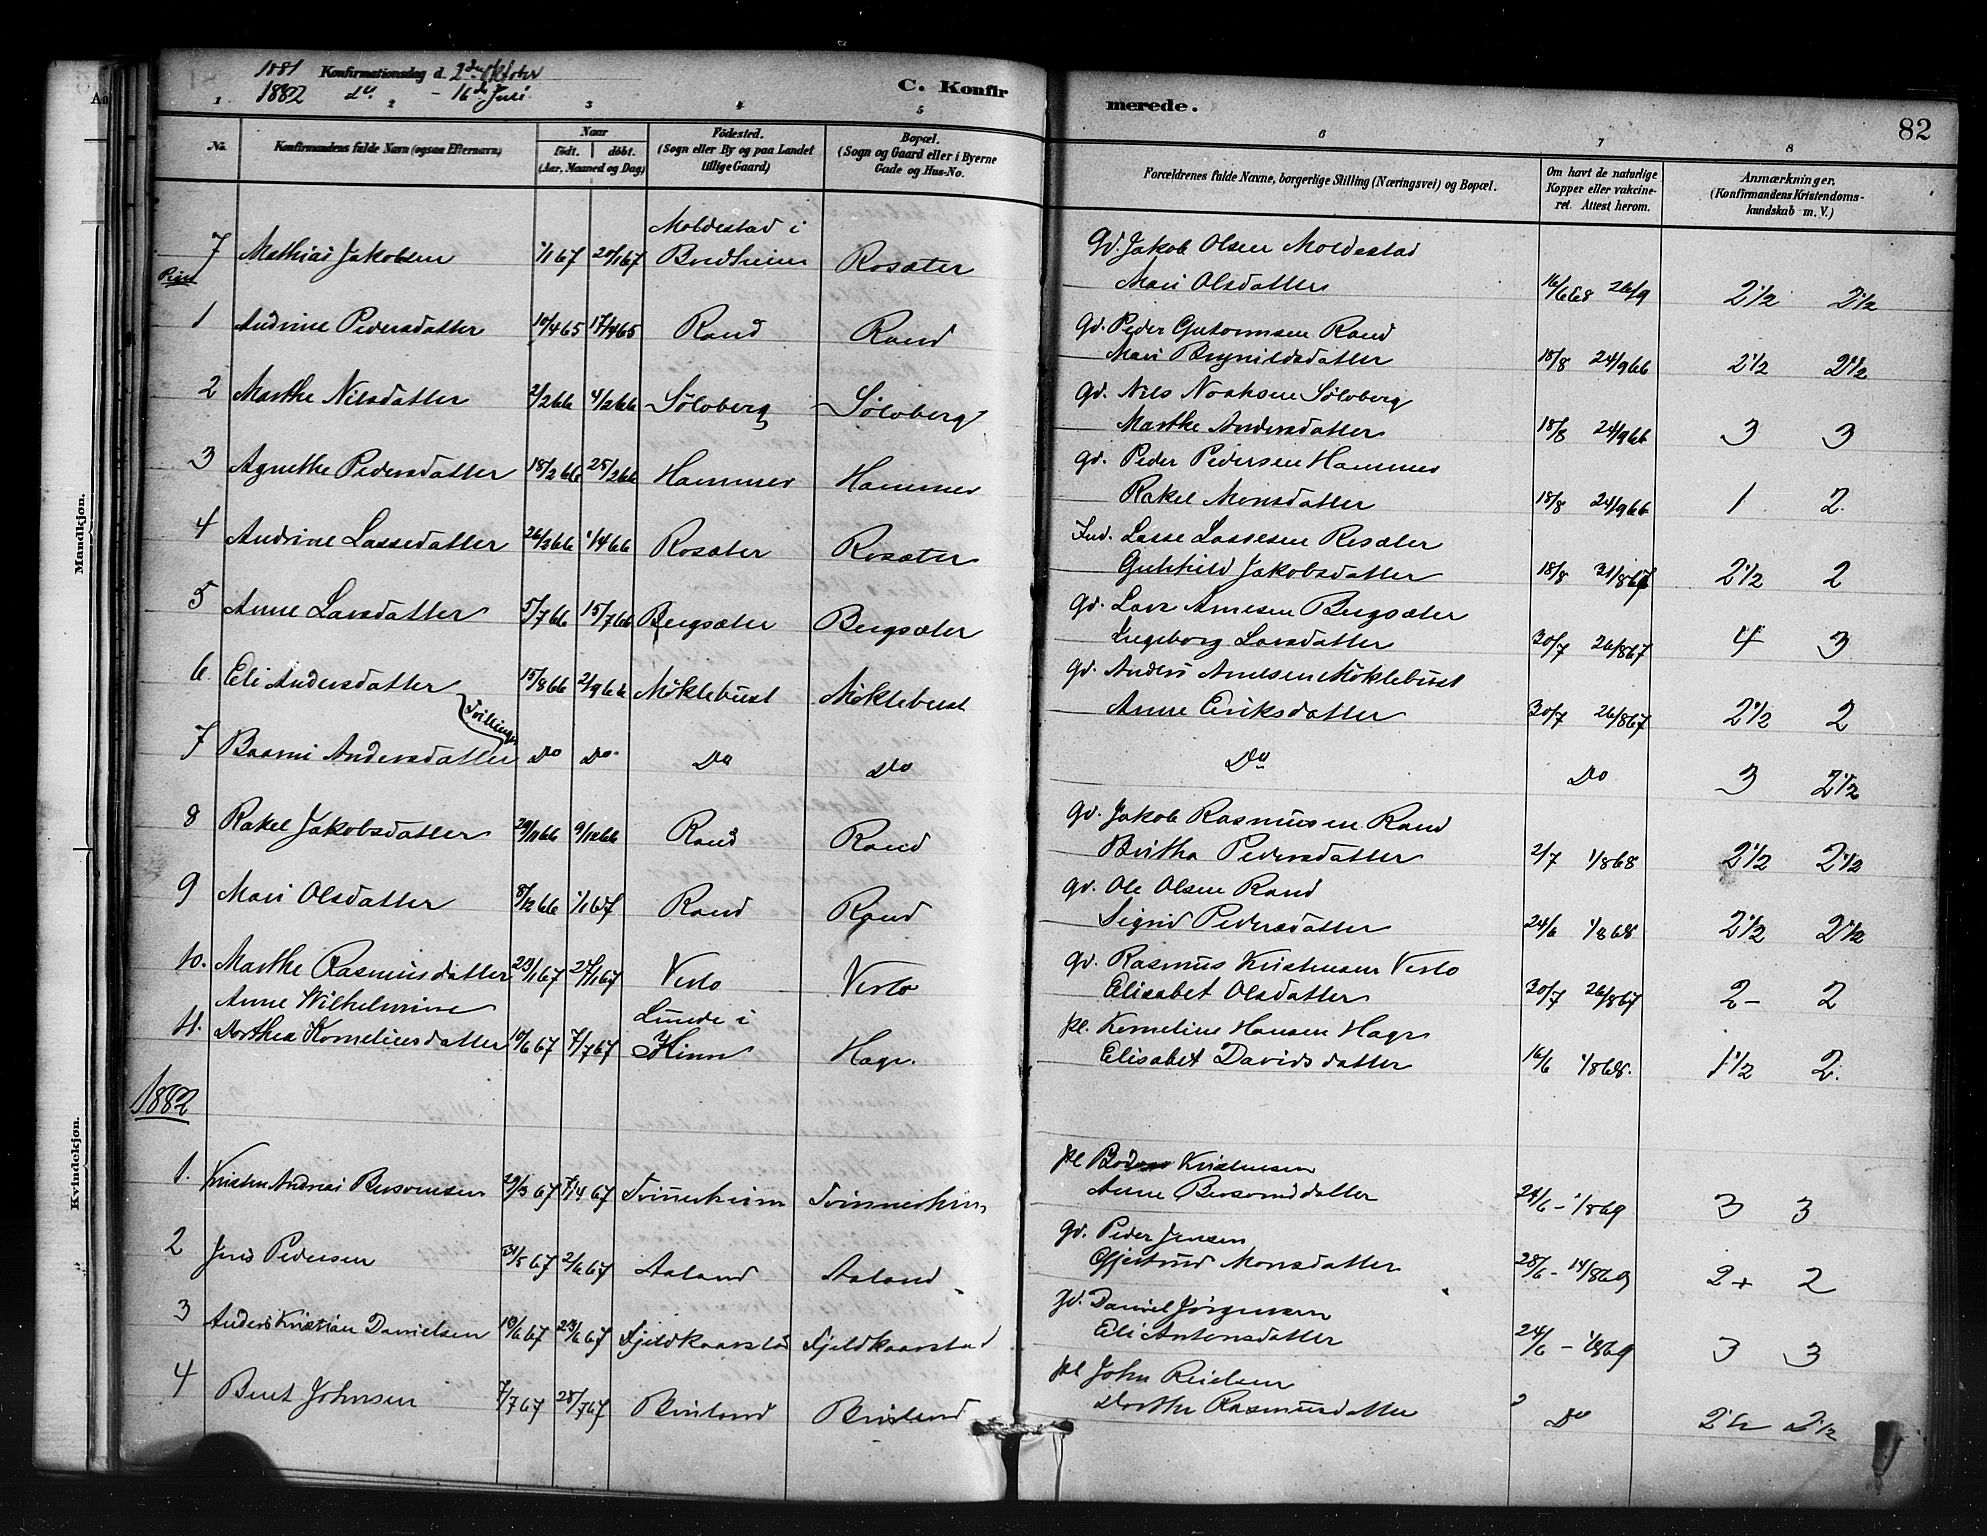 1881 Konfirmationsdag d. 2den Oktober
1882 do - 16de Juli
C. Konfirmerede.
82
1 2 3 4 5 6 7 8
No. Konfirmandens fulde Navn (ogsaa Efternavn) Naar födt. döbt. (Aar, Maaned og Dag) Födested. (Sogn eller By og paa Landet tillige Gaard) Bopæl. (Sogn og Gaard eller i Byerne Gade og Hus-No. Forældrenes fulde Navne, borgerlige Stilling (Næringsvei) og Bopæl. Om havt de naturlige Kopper eller vakcineret. Attest herom. Anmærkninger. (Konfirmandens Kristendomskundskab m. V.)
Mandkjøn.
Kvindekjøn.
7 Mathias Jakobsen 1/1 67 20/1 67 Moldestad i Bredheim Rosæter Gd. Jakob Olsen Moldestad
Mari Olsdatter 16/6 68 26/9 2 1/2 2 1/2
Piger
1 Andrine Pedersdatter 10/4 65 17/4 65 Rand Rand Gd. Peder Gutormsen Rand
Mari Brynildsdatter 18/8 24/9 66 2 1/2 2 1/2
2 Marthe Nilsdatter 2/2 66 4/2 66 Sølvberg Sølvberg Gd. Nils Noaksen Sølvberg
Marthe Andersdatter 18/8 24/9 66 3 3
3 Agnethe Pedersdatter 18/2 66 25/2 66 Hammer Hammer Gd. Peder Pedersen Hammer
Rakel Monsdatter 18/8 24/9 66 1 2
4 Andrine Lassedatter 26/3 66 1/4 66 Rosæter Rosæter Ind. Lasse Lassesen Rosæter
Gunhild Jakobsdatter 18/8 31/8 67 2 1/2 2
5 Anne Larsdatter 5/7 66 15/7 66 Bergsæter Bergsæter Gd. Lars Arnesen Bergsæter
Ingeborg Larsdatter 30/7 26/8 67 4 3
6 Eli Andersdatter 15/8 66 2/9 66 Møklebust Møklebust Gd. Anders Anelsen Møklebust
Anne Eriksdatter 30/7 26/8 67 2 1/2 2
Tvillinger
7 Andersdatter Do Do Do Do Do Do 3 2 1/2
8 Rakel Jakobsdatter 29/11 66 9/12 66 Rand Rand Gd. Jakob Rasmusen Rand
Britha Pedersdatter 2/7 1/8 68 2 1/2 2 1/2
9 Mari Olsdatter 8/12 66 1/1 67 Rand Rand Gd. Ole Olsen Rand
Sigrid Pedersdatter 24/6 1/8 68 2 1/2 2 1/2
10. Marthe Rasmusdatter 23/1 67 27/1 67 Verlo Verlo Gd. Rasmus Kristensen Verlo
Elisabet Olsdatter 30/7 26/8 67 2- 2
Anne Wilhelmine
11. Dorthea Korneliusdatter 10/6 67 7/7 67 Lunde i Kinn Hage Pl. Kornelius Hansen Hage
Elisabet Davidsdatter 16/6 1/8 68. 1 1/2 2.
1882
1. Kristen Andreas 29/3 67 7/4 67 Tvinnerheim Tvinnerheim Pl Kristensen
Anne 24/6 - 1/8 69 3 3
2 Jens Pedersen 31/5 67 2/6 67 Aaland Aaland Gd. Peder Jensen
Gjertrud Monsdatter 28/6 - 14/8 69 2+ 2
3 Anders Kristian Danielsen 10/6 67 23/6 67 Fjeldkaarstad Fjeldkaarstad Gd. Daniel Jørgensen
Eli Antonsdatter 24/6 - 1/8 69 3 3
4 Bent Johnsen 7/7 67 28/7 67 Brirland Brirland Pl John
Dorthe Rasmusdatter Do 2 1/2 2 1/2